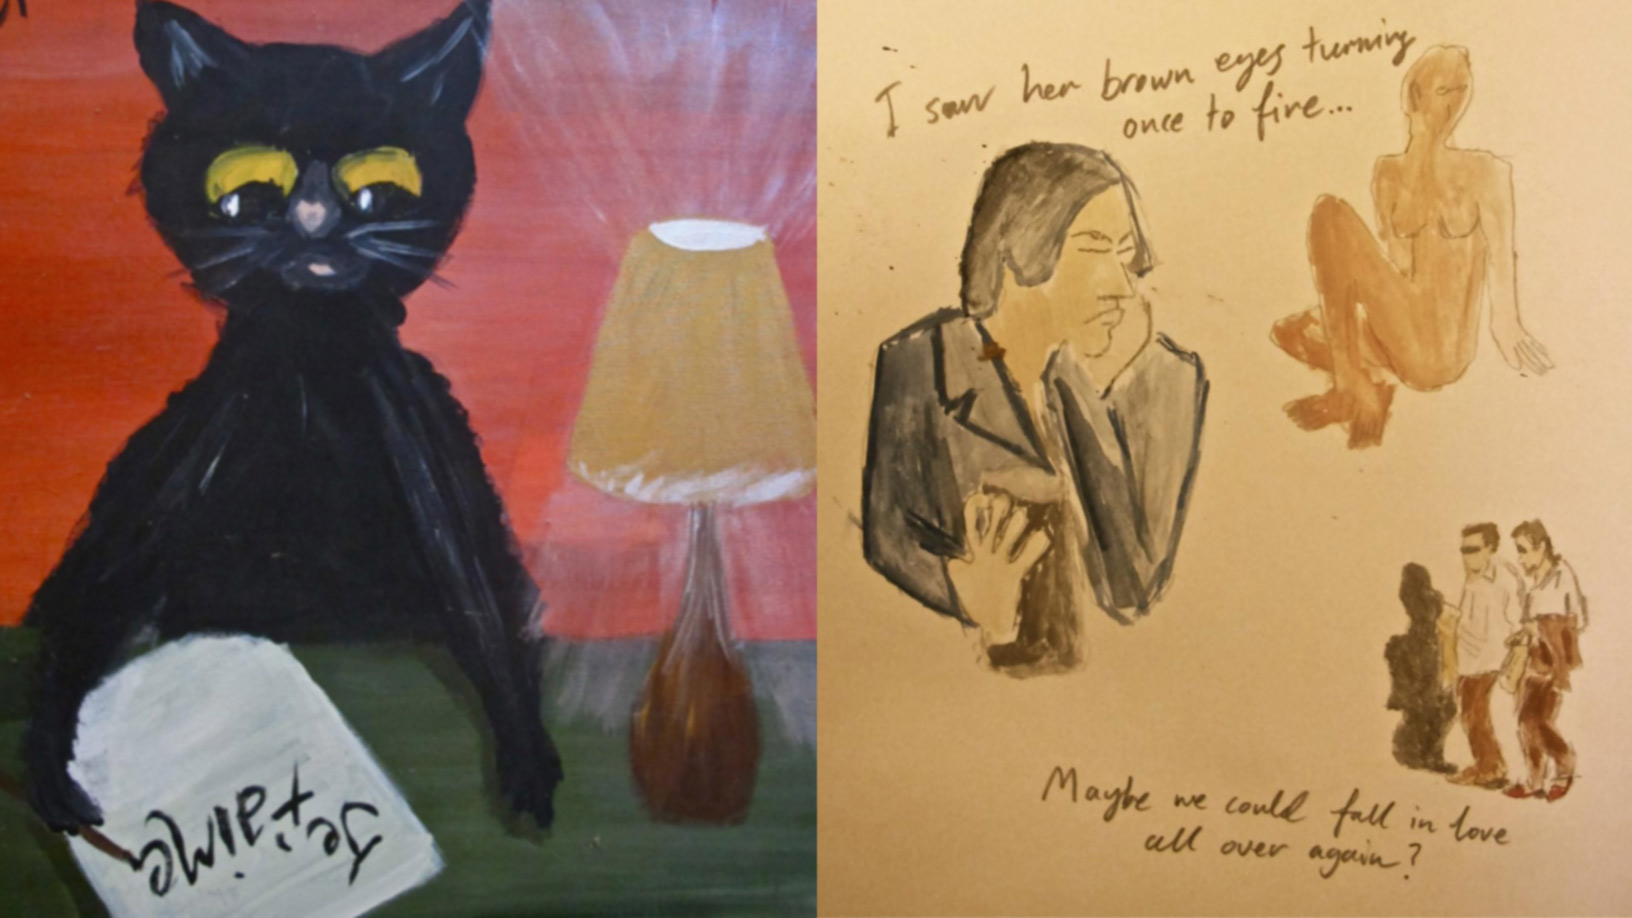 Je t'aime
I saw her brown eyes turning
once to fire...
Maybe we could fall in love
all over again?